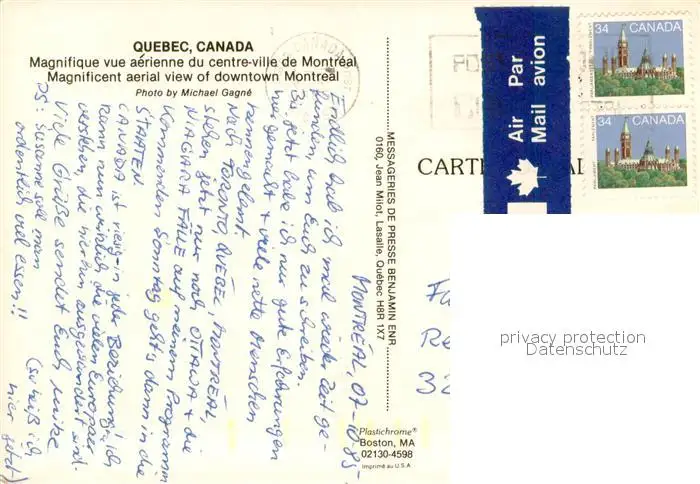 QUEBEC, CANADA
Magnifique vue aérienne du centre-ville de Montréal
Magnificent aerial view of downtown Montreal
Photo by Michael Gagné
MONTRÉAL, 07-10-85-
Endlich hab ich mal wieder Zeit ge-
funden, um Euch zu schreiben.
Bis jetzt habe ich nur gute Erfahrungen
hier gemacht + viele nette Menschen
kennengelernt.
Nach TORONTO, QUÉBEC, MONTRÉAL,
stehen jetzt nur noch OTTAWA + die
NIAGARA FÄLLE auf meinem Programm
Kommenden Sonntag geht's dann in die
STAATEN.
CANADA ist riesig in jeder Beziehung! Ich
kann nun wirklich die vielen Europäer
verstehen, die hierhin ausgewandert sind.
Viele Grüße sendet Euch,
PS: Susanne soll man
ordentlich viel essen!!
(so heiß ich
hier jetzt)
MESSAGERIES DE PRESSE BENJAMIN ENR.
0160, Jean Milot, Lasalle, Québec H8R 1X7
Plastichrome®
Boston, MA
02130-4598
Imprimé au U.S.A
Air Par
Mail avion
34 CANADA
34 CANADA
PARLIAMENT
CARTE
Re
32
privacy protection
Datenschutz